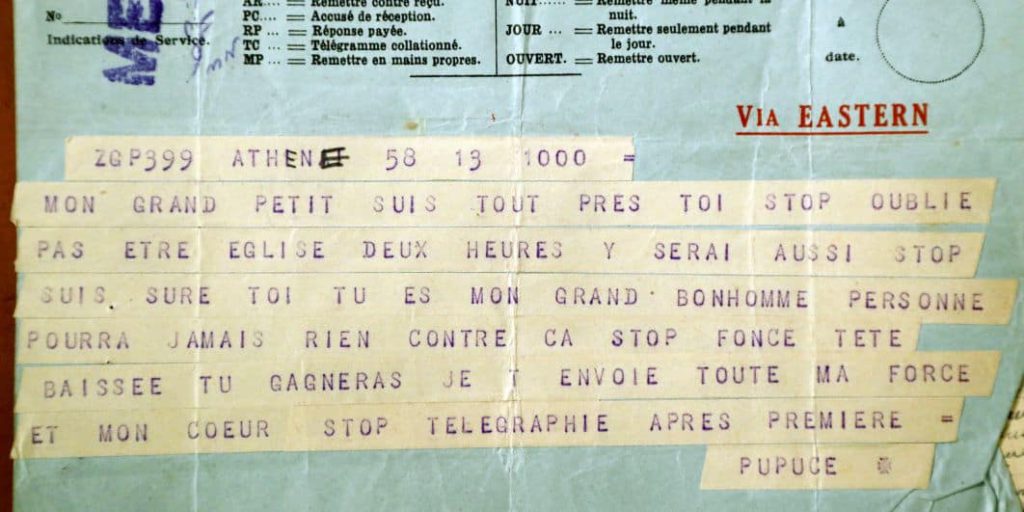 AR.... = Remettre contre reçu.
PC.... = Accusé de réception.
RP ... = Réponse payée.
TC ... = Télégramme collationné.
MP ... = Remettre en mains propres.
NUIT....... = Remettre même pendant la
nuit.
JOUR ... = Remettre seulement pendant
le jour.
OUVERT. = Remettre ouvert.
No
Indications de Service.
ME
à
date.
VIA EASTERN
ZGP399 ATHEN 58 13 1000 =
MON GRAND PETIT SUIS TOUT PRES TOI STOP OUBLIE
PAS ETRE EGLISE DEUX HEURES Y SERAI AUSSI STOP
SUIS SURE TOI TU ES MON GRAND BONHOMME PERSONNE
POURRA JAMAIS RIEN CONTRE CA STOP FONCE TETE
BAISSEE TU GAGNERAS JE T ENVOIE TOUTE MA FORCE
ET MON COEUR STOP TELEGRAPHIE APRES PREMIERE =
PUPUCE